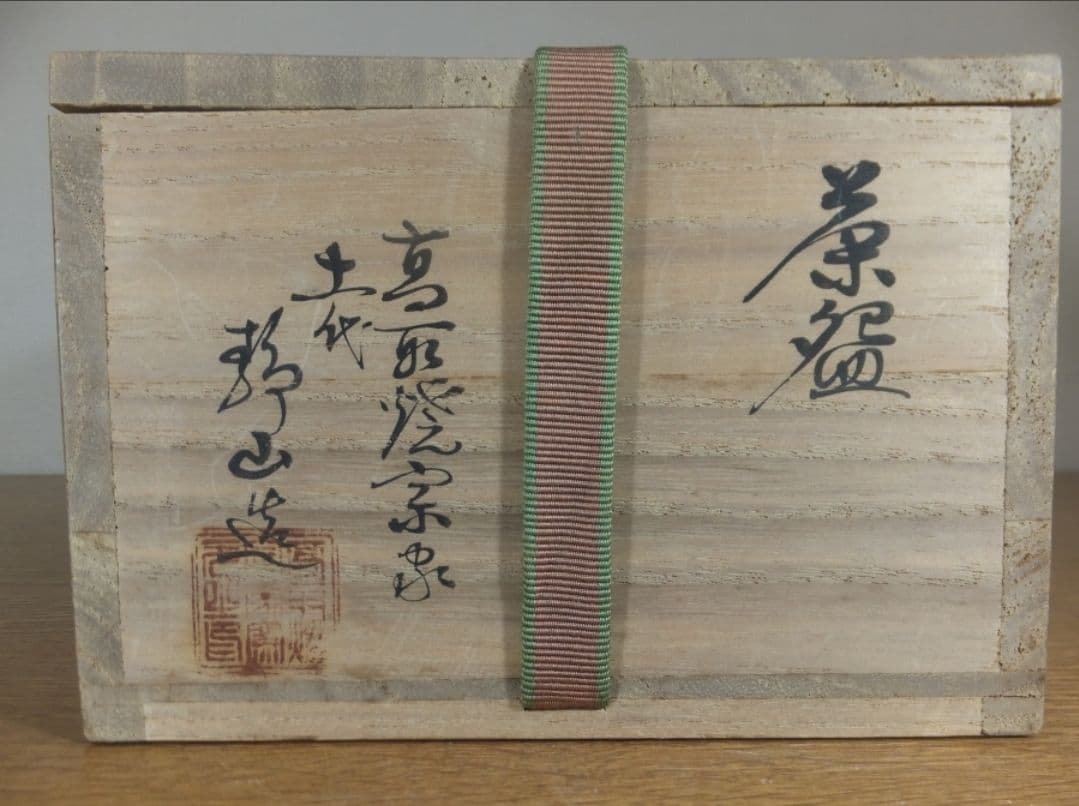 茶盌
高取燒宗家
十一代
静山造